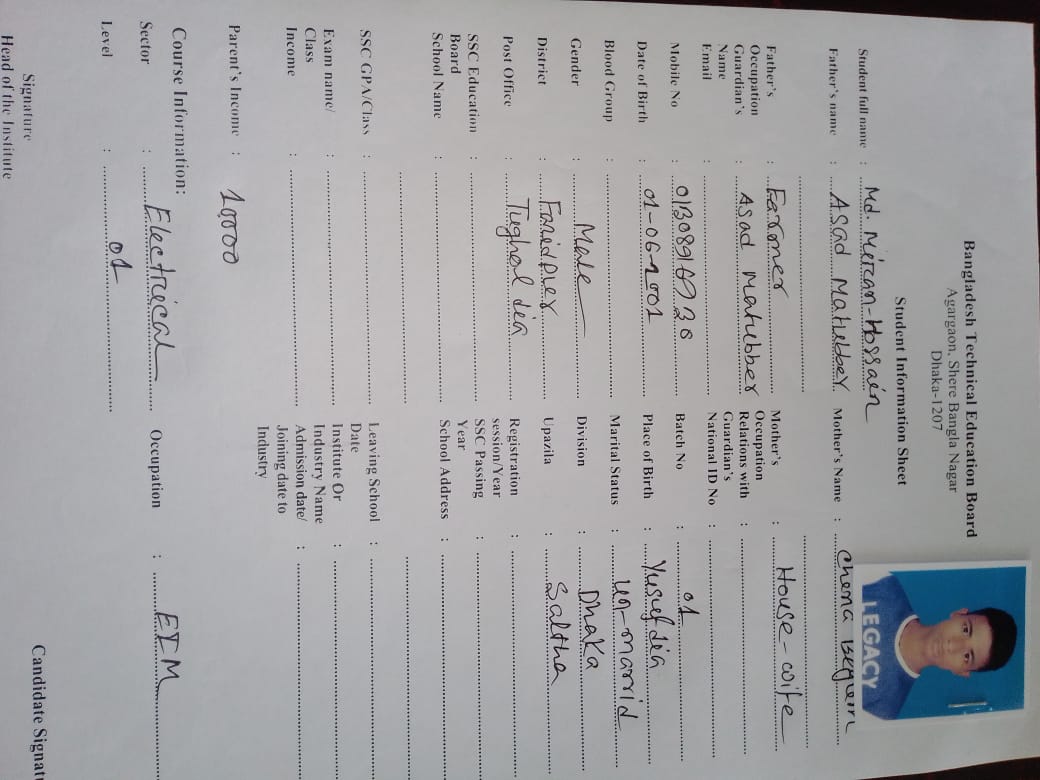 Bangladesh Technical Education Board
Agargaon, Shere Bangla Nagar
Dhaka-1207
Student Information Sheet
LEGACY
Student full name : Md. Miran-Hossain
Father's name : Asad Matubber Mother's Name : Chena Begum
Father's Occupation : Farmer Mother's Occupation : House-wife
Guardian's Name : Asad Matubber Relations with Guardian's :
Email : National ID No :
Mobile No : Batch No : 01
Date of Birth : 01-06-2001 Place of Birth : Yusufdia
Blood Group : Marital Status : Un-marrid
Gender : Male Division : Dhaka
District : Faridpur Upazila : Saltha
Post Office : Tughaldia Registration session/Year :
SSC Education Board : SSC Passing Year :
School Name : School Address :
SSC GPA/Class : Leaving School Date :
Exam name/ Class : Institute Or Industry Name :
Income : Admission date/ Joining date to Industry :
Parent's Income : 10000
Course Information:
Sector : Electrical Occupation : EIM
Level : 01
Signature
Head of the Institute
Candidate Signatu